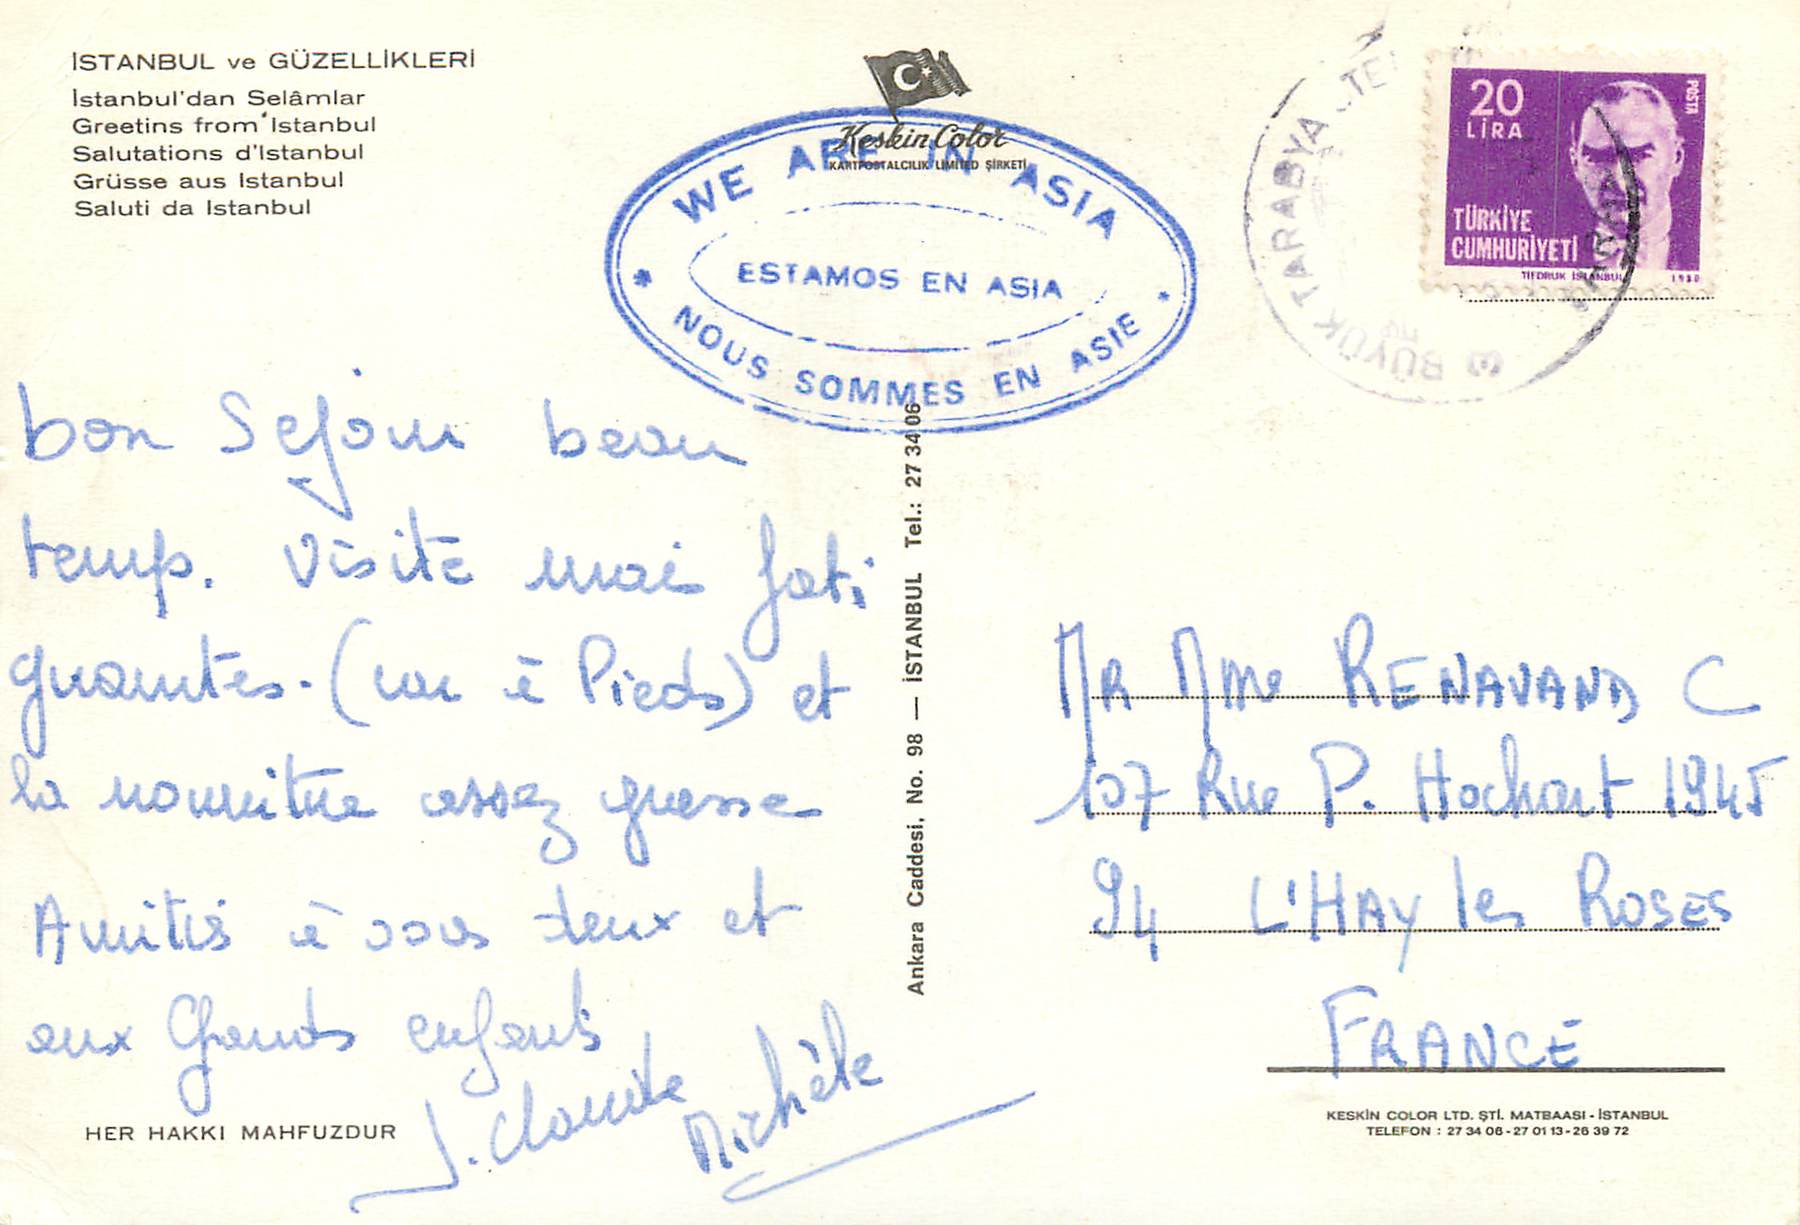 İSTANBUL ve GÜZELLİKLERİ
İstanbul'dan Selâmlar
Greetins from Istanbul
Salutations d'Istanbul
Grüsse aus Istanbul
Saluti da Istanbul
Keskin Color
KARTPOSTALCILIK LIMITED ŞİRKETİ
WE ARE IN ASIA
ESTAMOS EN ASIA
* NOUS SOMMES EN ASIE *
BÜYÜK TARABYA
20
LİRA
POSTA
TÜRKİYE
CUMHURİYETİ
TİFDRUK İSTANBUL 1980
bon Sejour beau
temps. Visite mais fati
guantes. (car à Pieds) et
la nourritue assez grasse
Amitiés à vous deux et
aux Grands enfants
J. Claude Michèle
Ankara Caddesi, No. 98 — İSTANBUL Tel.: 27 34 06
MR Mme RENAVAND C
107 Rue P. Hochart 1945
94 L'HAY les ROSES
FRANCE
HER HAKKI MAHFUZDUR
KESKİN COLOR LTD. ŞTİ. MATBAASI - İSTANBUL
TELEFON : 27 34 06 - 27 01 13 - 26 39 72